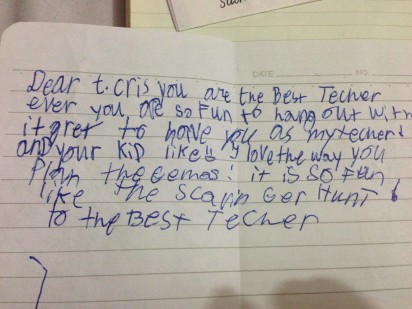 Dear t. cris you are the Best Techer
ever you are so fun to hang out with
it gret to have you as my techer
and your kid likes I love the way you
Plan the gemes! it is so fun
like the scavin ger Hunt
to the BEST Techer
DATE NO